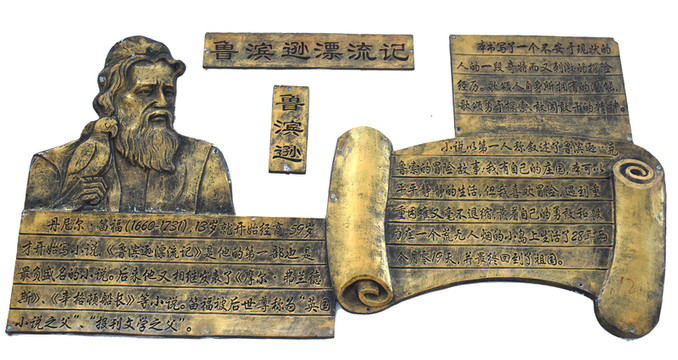 鲁滨逊漂流记
鲁滨逊
本书写了一个不安于现状的
人的一段奇特而又刺激的探险
经历。歌颂人自身所拥有的潜能，
歌颂勇于探索、敢闯敢拼的精神。
小说以第一人称叙述了鲁滨逊·克
鲁索的冒险故事。我有自己的庄园，本可以
平平静静的生活，但我喜欢冒险，遇到重
重困难又毫不退缩，凭着自己的勇敢和毅
力在一个荒无人烟的小岛上生活了28年两
个月零19天，并最终回到了祖国。
丹尼尔·笛福(1660-1731)，13岁就开始经商，59岁
才开始写小说。《鲁滨逊漂流记》是他的第一部也是
最负盛名的小说。后来他又相继发表了《摩尔·弗兰德
斯》、《辛格顿船长》等小说。笛福被后世尊称为“英国
小说之父”、“报刊文学之父”。